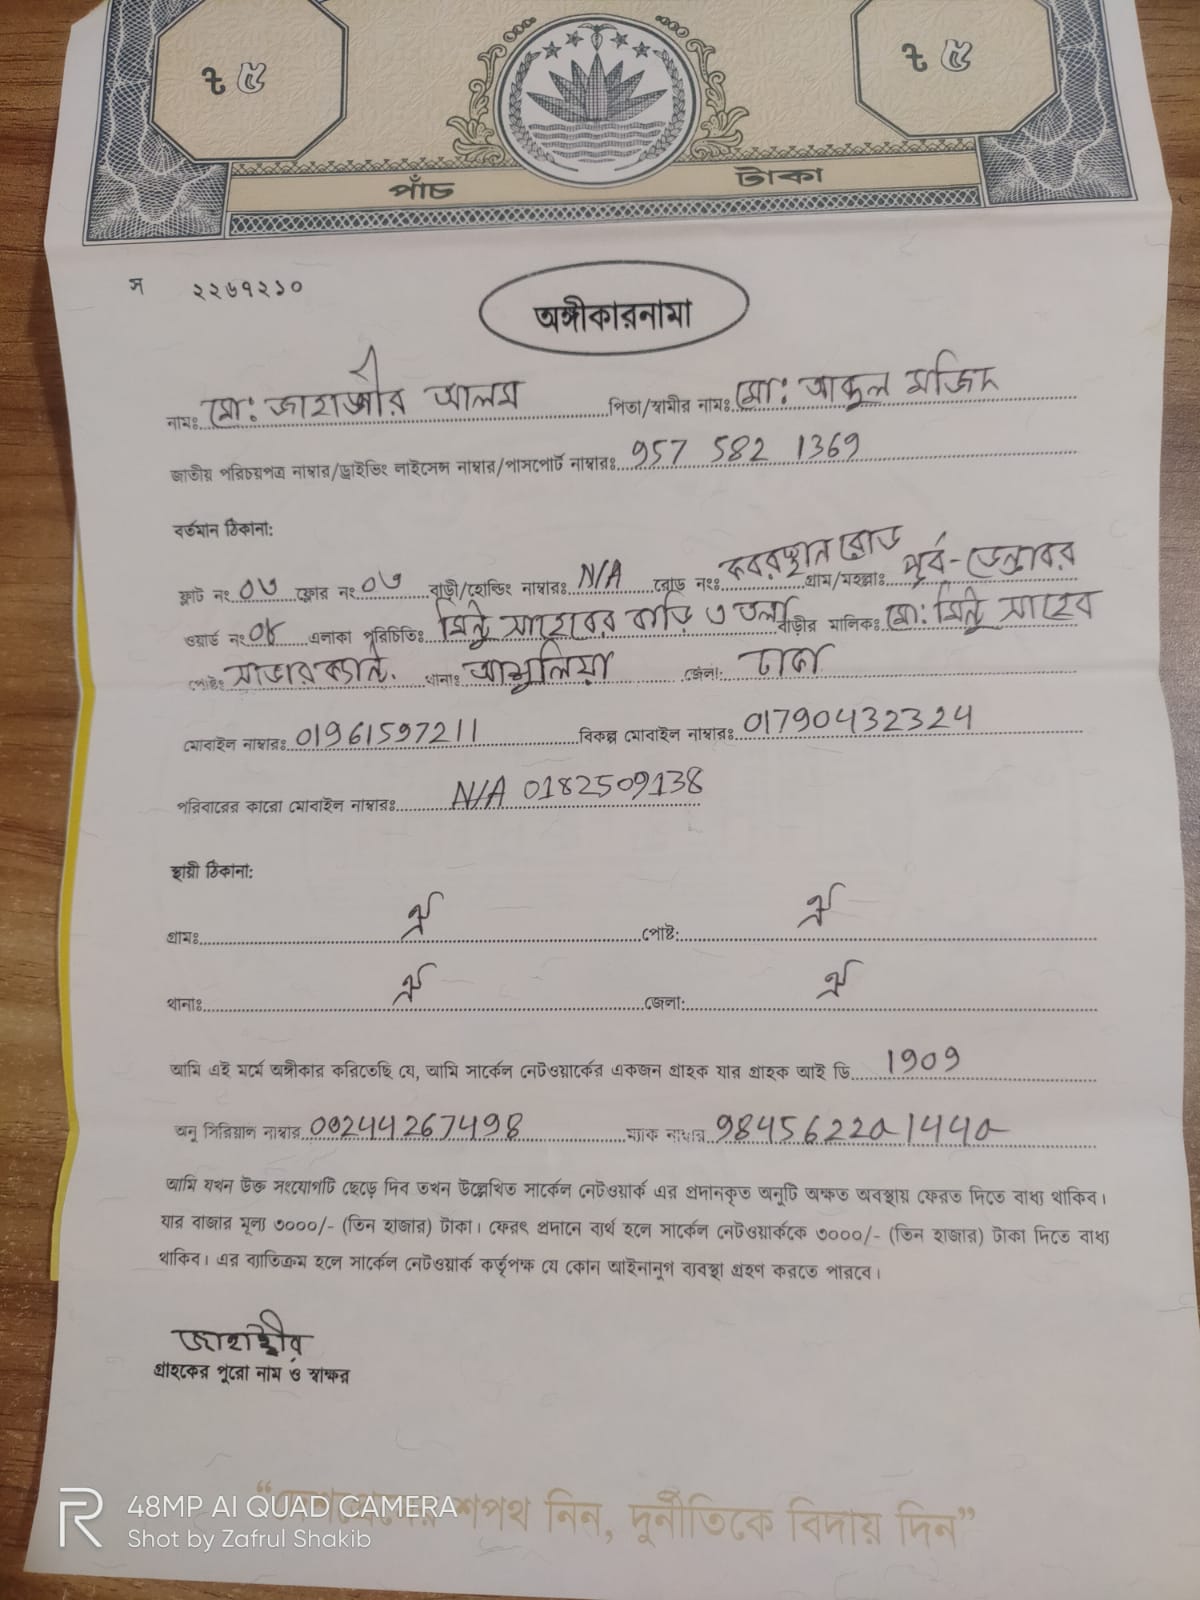 ৳ ৫ ৳ ৫
পাঁচ টাকা
স ২২৬৭২১০
অঙ্গীকারনামা
নামঃ মো: জাহাঙ্গীর আলম পিতা/স্বামীর নামঃ মো: আব্দুল মজিদ
জাতীয় পরিচয়পত্র নাম্বার/ড্রাইভিং লাইসেন্স নাম্বার/পাসপোর্ট নাম্বারঃ 957 582 1369
বর্তমান ঠিকানা:
ফ্লাট নং ০৩ ফ্লোর নং ০৩ বাড়ী/হোল্ডিং নাম্বারঃ N/A রোড নংঃ কবরস্থান রোড গ্রাম/মহল্লাঃ পূর্ব-ডেন্ডাবর
ওয়ার্ড নং ০৪ এলাকা পরিচিতিঃ মিন্টু সাহেবের বাড়ি ৩ তলা বাড়ীর মালিকঃ মো: মিন্টু সাহেব
পোষ্টঃ সাভার ক্যান্ট. থানাঃ আশুলিয়া জেলা: ঢাকা
মোবাইল নাম্বারঃ 01961597211 বিকল্প মোবাইল নাম্বারঃ 01790432324
পরিবারের কারো মোবাইল নাম্বারঃ N/A 0182509138
স্থায়ী ঠিকানা:
গ্রামঃ ঐ পোষ্ট: ঐ
থানাঃ ঐ জেলা: ঐ
আমি এই মর্মে অঙ্গীকার করিতেছি যে, আমি সার্কেল নেটওয়ার্কের একজন গ্রাহক যার গ্রাহক আই ডি 1909
অনু সিরিয়াল নাম্বার 00244267498 ম্যাক নাম্বার
আমি যখন উক্ত সংযোগটি ছেড়ে দিব তখন উল্লেখিত সার্কেল নেটওয়ার্ক এর প্রদানকৃত অনুটি অক্ষত অবস্থায় ফেরত দিতে বাধ্য থাকিব।
যার বাজার মূল্য ৩০০০/- (তিন হাজার) টাকা। ফেরৎ প্রদানে ব্যর্থ হলে সার্কেল নেটওয়ার্ককে ৩০০০/- (তিন হাজার) টাকা দিতে বাধ্য
থাকিব। এর ব্যতিক্রম হলে সার্কেল নেটওয়ার্ক কর্তৃপক্ষ যে কোন আইনানুগ ব্যবস্থা গ্রহণ করতে পারবে।
জাহাঙ্গীর
গ্রাহকের পুরো নাম ও স্বাক্ষর
শপথ নিন, দুর্নীতিকে বিদায় দিন”
48MP AI QUAD CAMERA
Shot by Zafrul Shakib